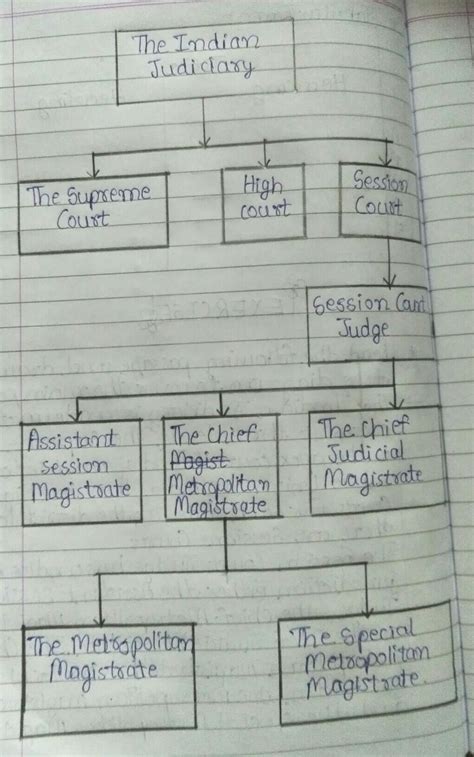 The Indian
Judiciary
The Supreme
Court
High
court
Session
Court
Session Court
Judge
Assistant
session
Magistrate
The Chief
Magist
Metropolitan
Magistrate
The Chief
Judicial
Magistrate
The Metropolitan
Magistrate
The Special
Metropolitan
Magistrate.